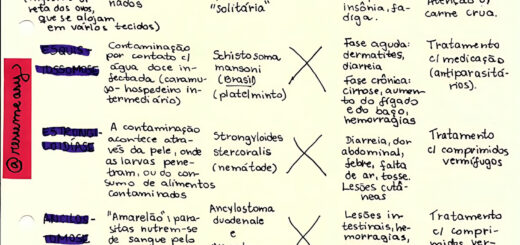 reta dos ovos,
que se alojam
em vários tecidos)
nados
"solitária"
insônia, fa-
diga.
carne crua.
@resumeany
ESQUIS-
TOSSOMOSE
Contaminação
por contato c/
água doce in-
fectada (caramu-
jo - hospedeiro in-
termediário)
Schistosoma
mansoni
(Brasil)
(platelminto)
Fase aguda:
dermatites,
diarreia
Fase crônica:
cirrose, aumen-
to do fígado
e do baço,
hemorragias
Tratamento
c/ medicação
(antiparasitá-
rios).
ESTRONGI-
LOIDÍASE
A contaminação
acontece atra-
vés da pele, onde
as larvas pene-
tram, ou do con-
sumo de alimentos
contaminados
Strongyloides
stercoralis
(nemátode)
Diarreia, dor
abdominal,
febre, falta
de ar, tosse.
Lesões cutâ-
neas
Tratamento
c/ comprimidos
vermífugos
ANCILOS-
TOMOSE
"Amarelão"; para-
sitas nutrem-se
de sangue pelo
Ancylostoma
duodenale
e
Lesões in-
testinais, he-
morragias,
Tratamento
c/ compri-
midos ver-